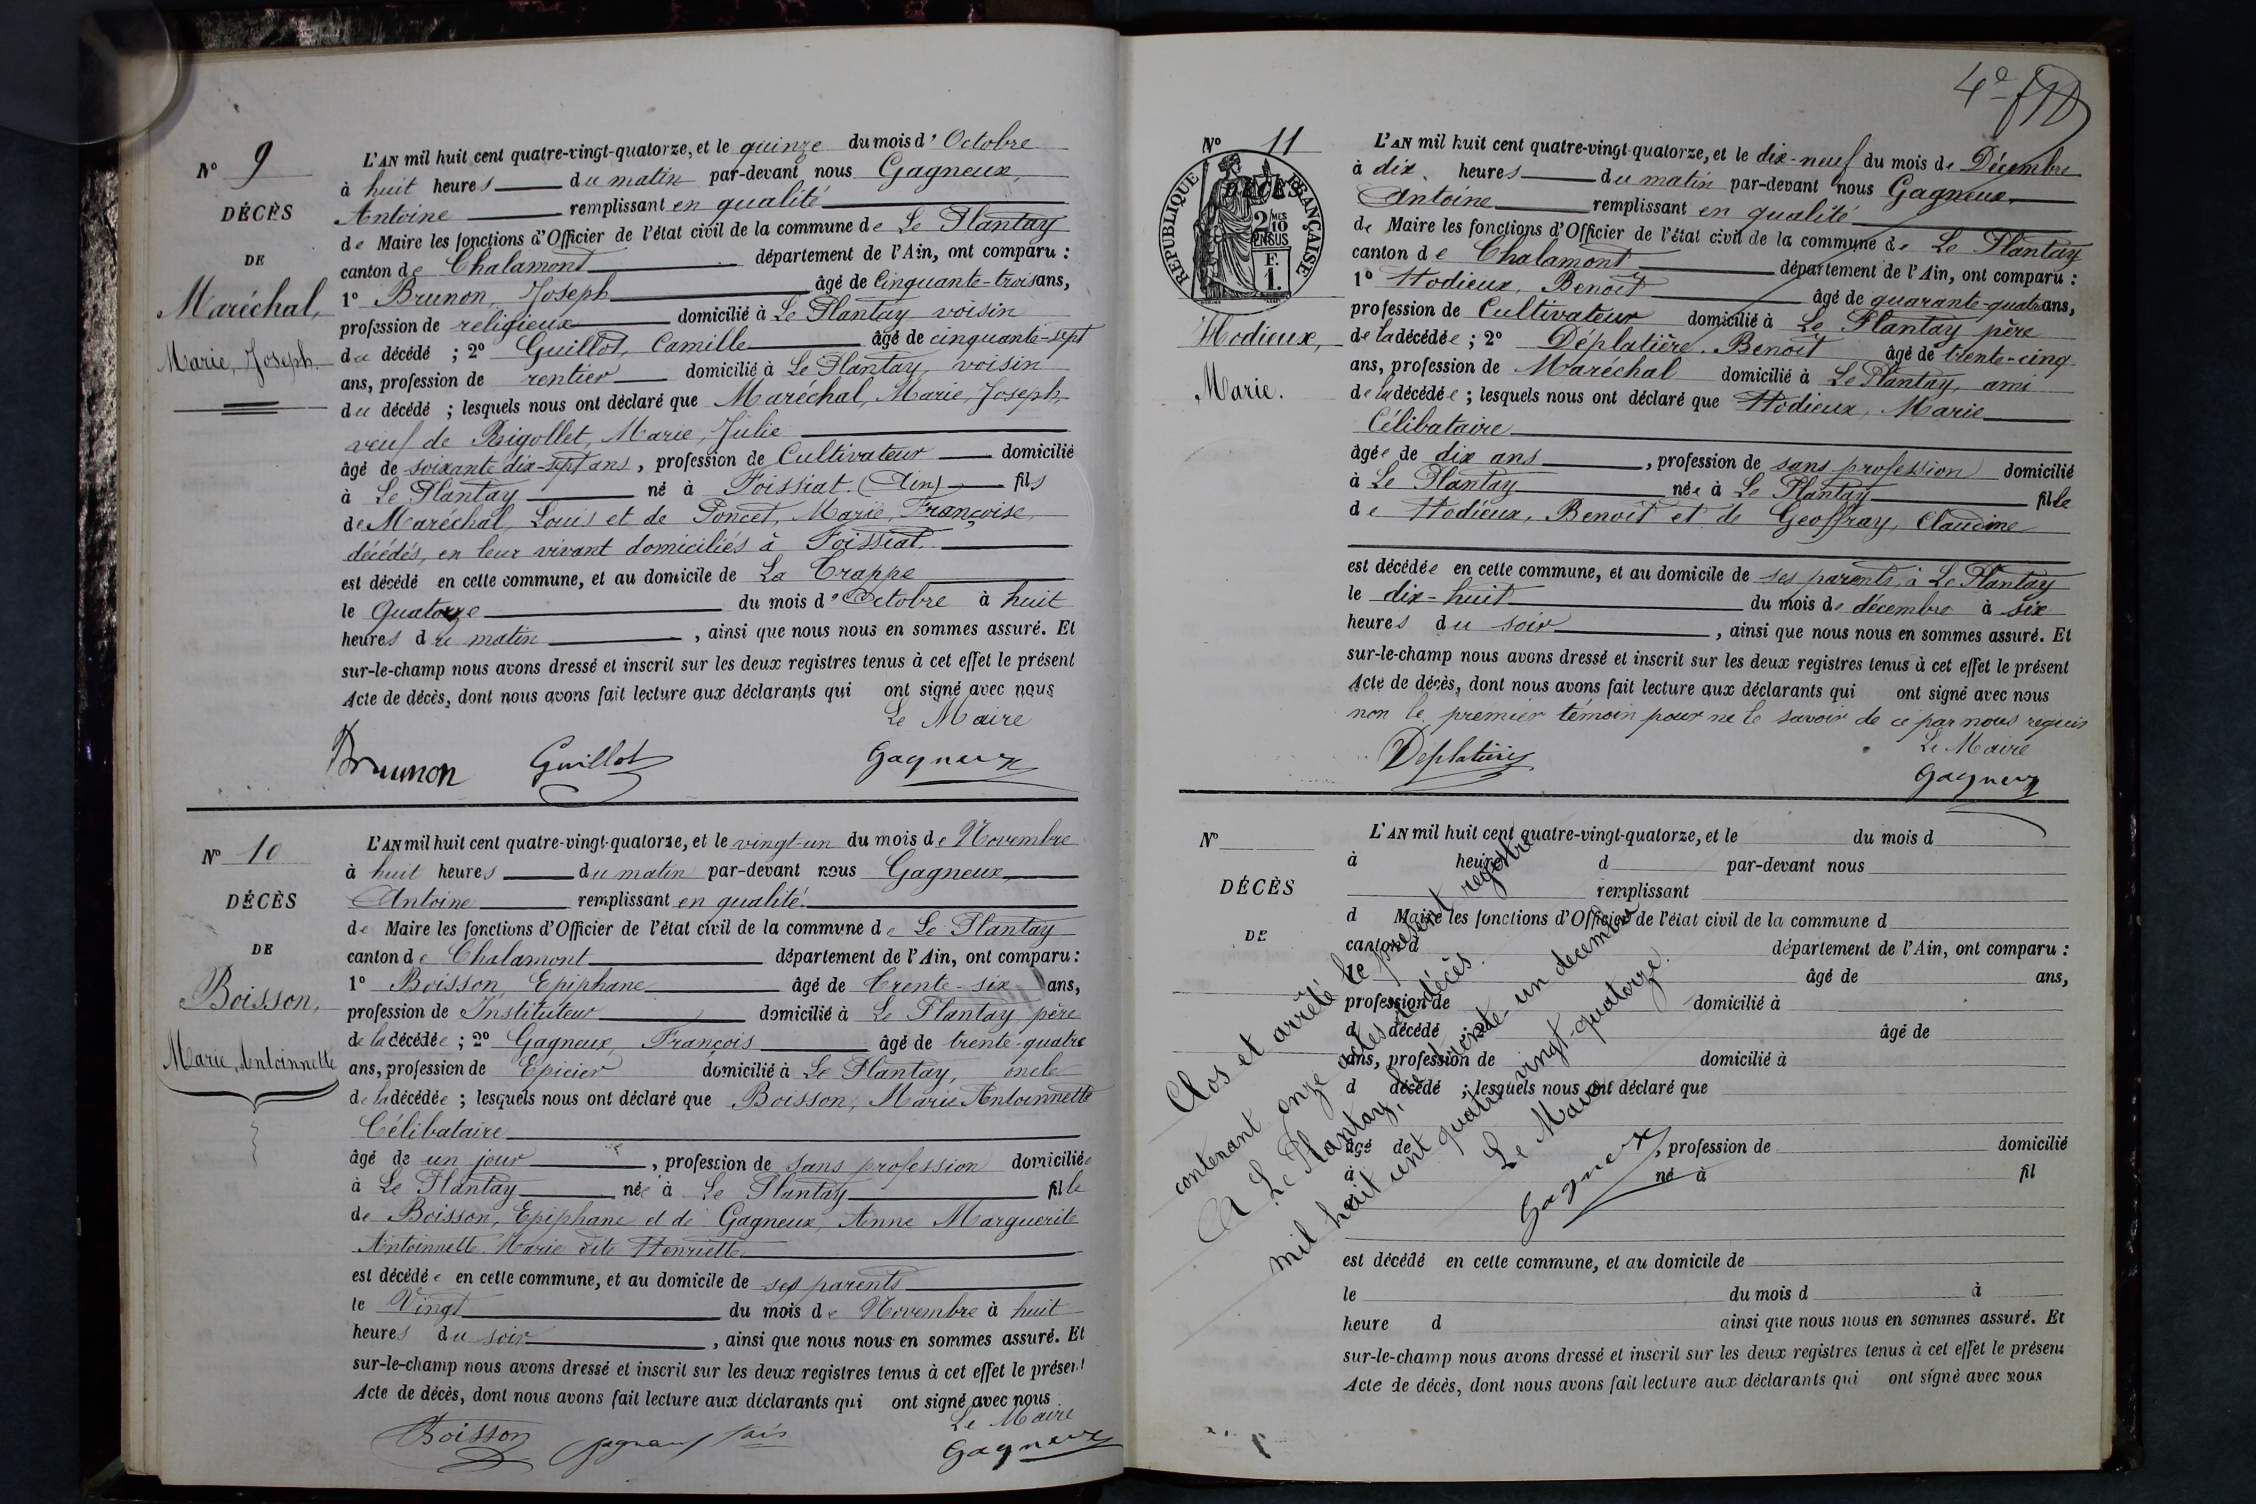 N° 9
DÉCÈS
DE
Maréchal,
Marie, Joseph.
L'AN mil huit cent quatre-vingt-quatorze, et le quinze du mois d'Octobre
à huit heures du matin par-devant nous Gagneux,
Antoine remplissant en qualité
de Maire les fonctions d'Officier de l'état civil de la commune de Le Plantay
canton de Chalamont département de l'Ain, ont comparu :
1° Brunon, Joseph âgé de Cinquante-trois ans,
profession de religieux domicilié à Le Plantay voisin
du décédé ; 2° Guillot, Camille âgé de cinquante-sept
ans, profession de rentier domicilié à Le Plantay, voisin
du décédé ; lesquels nous ont déclaré que Maréchal, Marie, Joseph,
veuf de Rigollet, Marie, Julie
âgé de soixante dix-sept ans, profession de Cultivateur domicilié
à Le Plantay né à Foissiat. (Ain) fils
de Maréchal, Louis et de Poncet, Marie, Françoise,
décédés, en leur vivant domiciliés à Foissiat.
est décédé en cette commune, et au domicile de La Trappe
le Quatorze du mois d'Octobre à huit
heures du matin, ainsi que nous nous en sommes assuré. Et
sur-le-champ nous avons dressé et inscrit sur les deux registres tenus à cet effet le présent
Acte de décès, dont nous avons fait lecture aux déclarants qui ont signé avec nous
Le Maire
Brunon Guillot Gagneux
N° 10
DÉCÈS
DE
Boisson,
Marie, Antoinnette
L'AN mil huit cent quatre-vingt-quatorze, et le vingt-un du mois de Novembre
à huit heures du matin par-devant nous Gagneux,
Antoine remplissant en qualité
de Maire les fonctions d'Officier de l'état civil de la commune de Le Plantay
canton de Chalamont département de l'Ain, ont comparu :
1° Boisson, Epiphane âgé de Trente-six ans,
profession de Instituteur domicilié à Le Plantay père
de la décédée ; 2° Gagneux, François âgé de trente-quatre
ans, profession de Epicier domicilié à Le Plantay, oncle
de la décédée ; lesquels nous ont déclaré que Boisson, Marie Antoinnette
Célibataire
âgé de un jour, profession de sans profession domiciliée
à Le Plantay née à Le Plantay fille
de Boisson, Epiphane et de Gagneux, Anne Marguerite
Antoinnette Marie dite Henriette
est décédée en cette commune, et au domicile de ses parents
le Vingt du mois de Novembre à huit
heures du soir, ainsi que nous nous en sommes assuré. Et
sur-le-champ nous avons dressé et inscrit sur les deux registres tenus à cet effet le présent
Acte de décès, dont nous avons fait lecture aux déclarants qui ont signé avec nous
Le Maire
Boisson Gagneux Gagneux
4e
N° 11
RÉPUBLIQUE FRANÇAISE.
DÉCÈS
2/10 EN SUS
F. 1.
Hodieux,
Marie.
L'AN mil huit cent quatre-vingt-quatorze, et le dix-neuf du mois de Décembre
à dix heures du matin par-devant nous Gagneux,
Antoine remplissant en qualité
de Maire les fonctions d'Officier de l'état civil de la commune de Le Plantay
canton de Chalamont département de l'Ain, ont comparu :
1° Hodieux, Benoît âgé de quarante-quatre ans,
profession de Cultivateur domicilié à Le Plantay père
de la décédée ; 2° Déplatière, Benoît âgé de trente-cinq
ans, profession de Maréchal domicilié à Le Plantay, ami
de la décédée ; lesquels nous ont déclaré que Hodieux, Marie
Célibataire
âgée de dix ans, profession de sans profession domicilié
à Le Plantay née à Le Plantay fille
de Hodieux, Benoît et de Geoffray, Claudine
est décédée en cette commune, et au domicile de ses parents, à Le Plantay
le dix-huit du mois de décembre à six
heures du soir, ainsi que nous nous en sommes assuré. Et
sur-le-champ nous avons dressé et inscrit sur les deux registres tenus à cet effet le présent
Acte de décès, dont nous avons fait lecture aux déclarants qui ont signé avec nous
non le premier témoin pour ne le savoir de ce par nous requis
Le Maire
Deplatière Gagneux
N°
DÉCÈS
DE
L'AN mil huit cent quatre-vingt-quatorze, et le du mois d
à heure d par-devant nous
remplissant
d Maire les fonctions d'Officier de l'état civil de la commune d
canton d département de l'Ain, ont comparu :
1° âgé de ans,
profession de domicilié à
d décédé ; 2° âgé de
ans, profession de domicilié à
d décédé ; lesquels nous ont déclaré que
âgé de , profession de domicilié
à né à fil
d
est décédé en cette commune, et au domicile de
le du mois d à
heure d ainsi que nous nous en sommes assuré. Et
sur-le-champ nous avons dressé et inscrit sur les deux registres tenus à cet effet le présent
Acte de décès, dont nous avons fait lecture aux déclarants qui ont signé avec nous
Clos et arrêté le présent registre
contenant onze actes de décès.
A Le Plantay, le trente-un décembre
mil huit cent quatre vingt-quatorze.
Le Maire
Gagneux